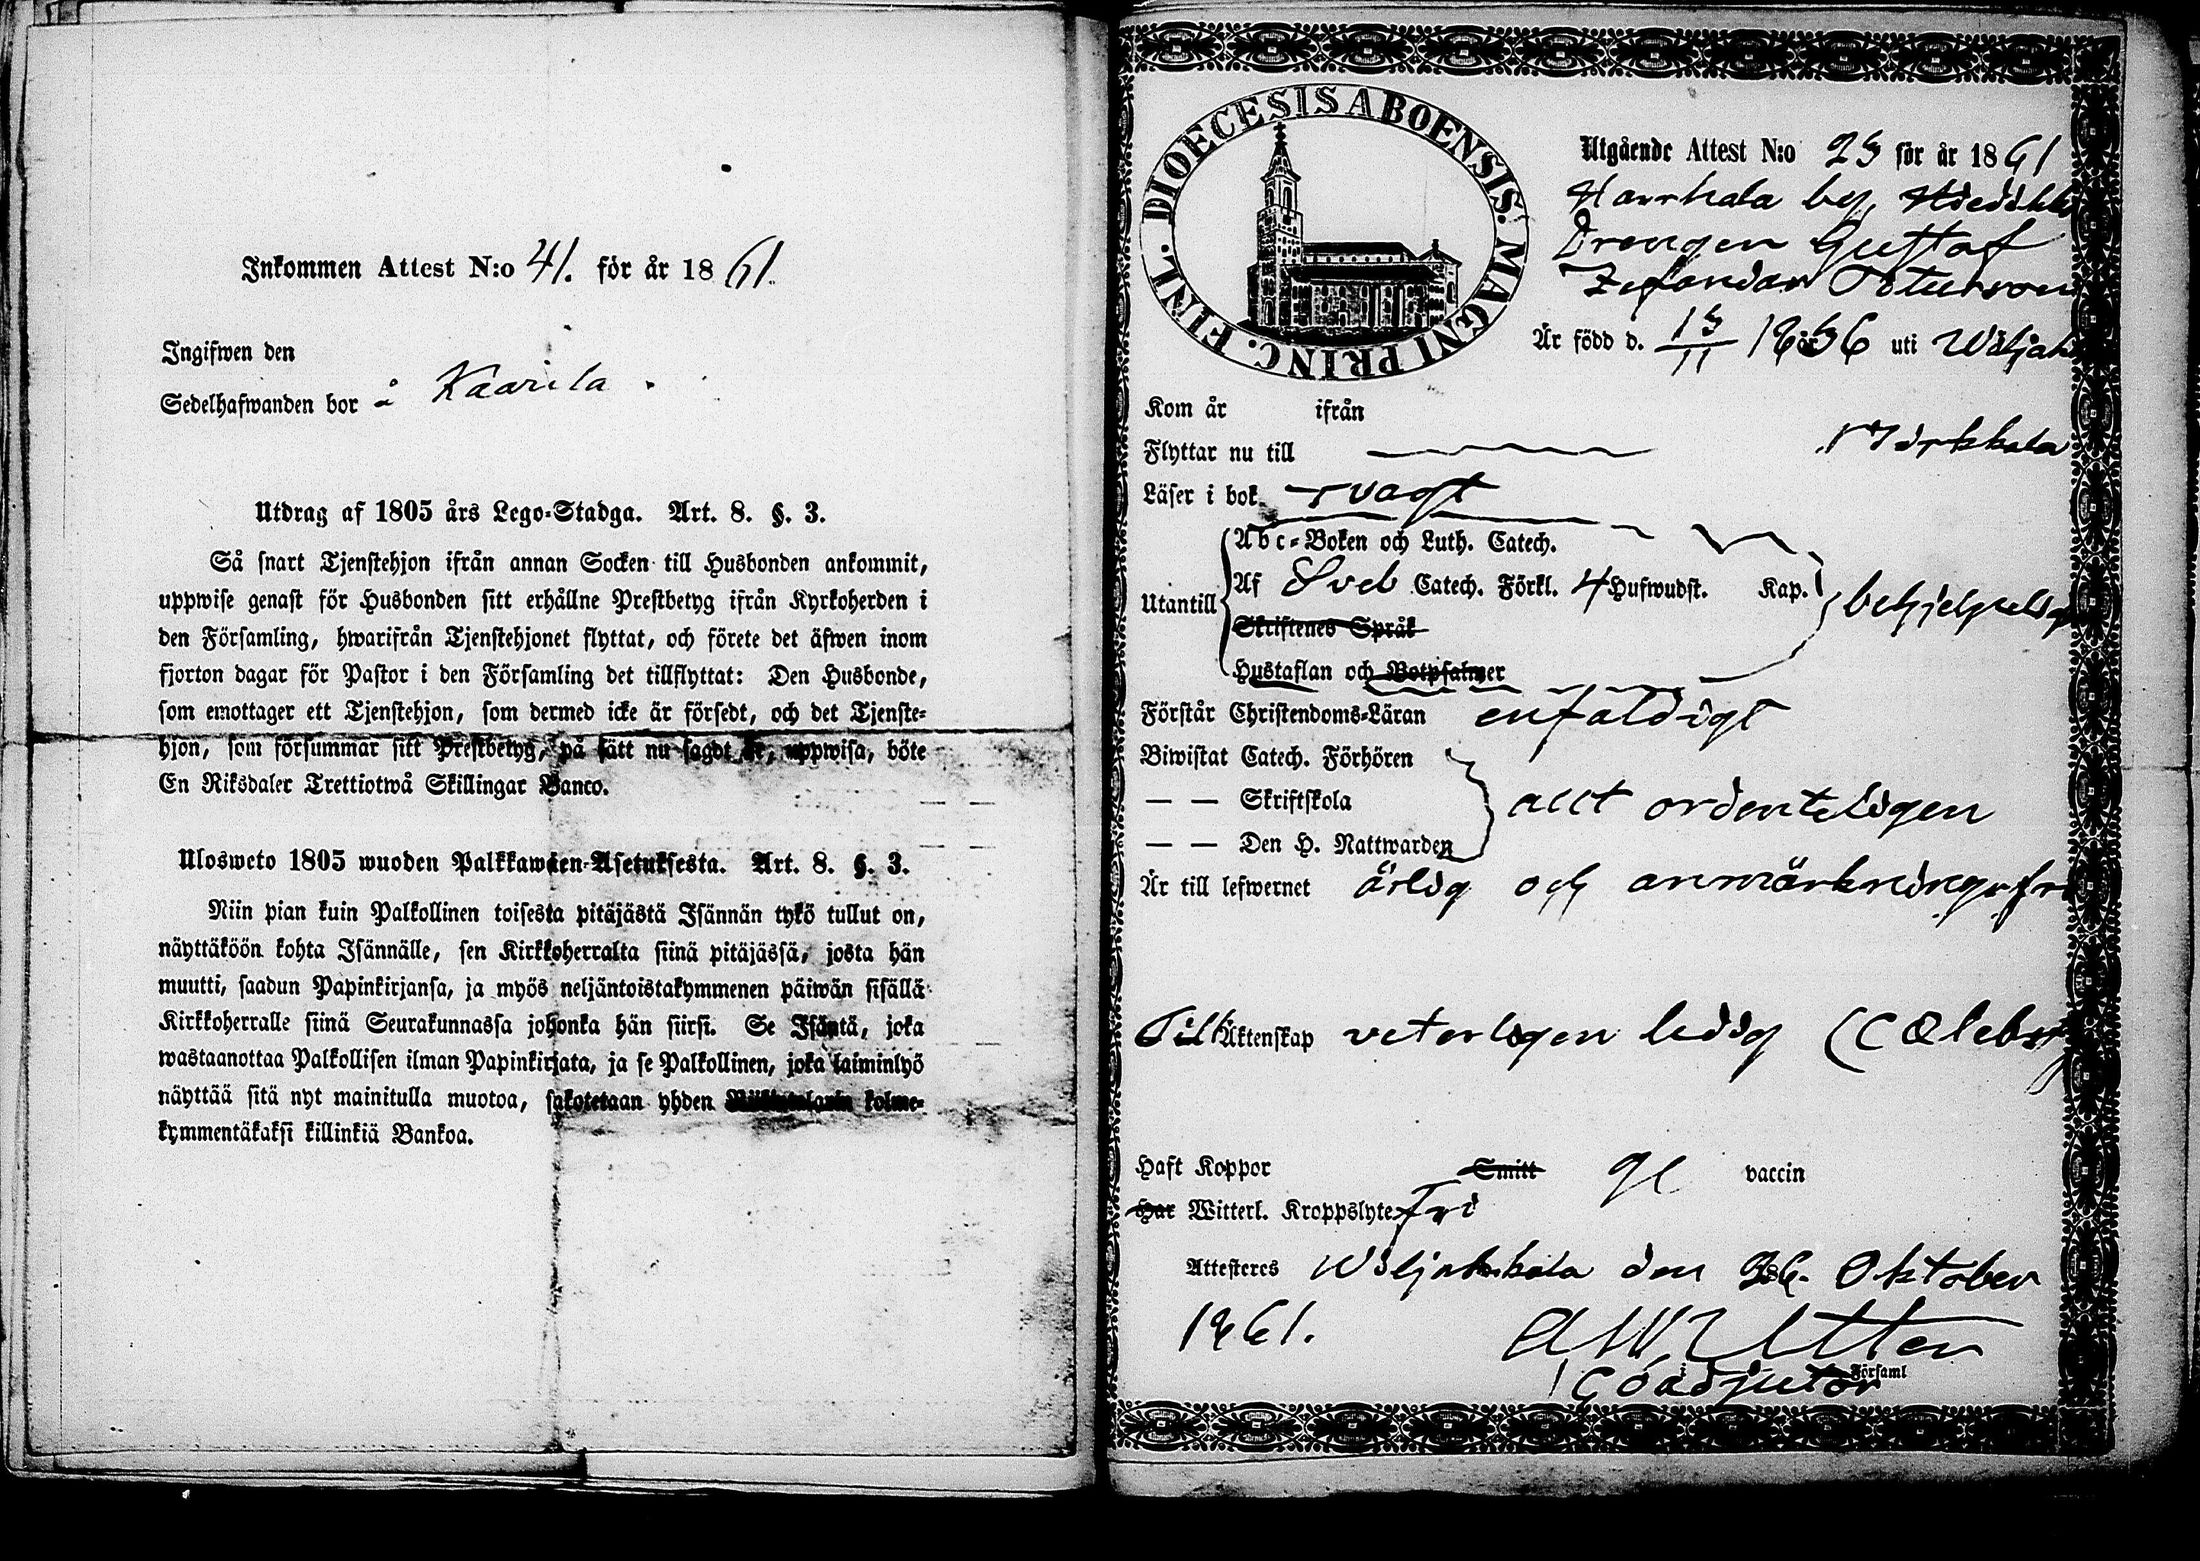 Inkommen Attest N:o 41. för år 1861.
Ingifwen den
Sedelhafwanden bor å Kaarila.
Utdrag af 1805 års Lego-Stadga. Art. 8. §. 3.
Så snart Tjenstehjon ifrån annan Socken till Husbonden ankommit,
uppwise genast för Husbonden sitt erhållne Prestbetyg ifrån Kyrkoherden i
den Församling, hwarifrån Tjenstehjonet flyttat, och förete det äfwen inom
fjorton dagar för Pastor i den Församling det tillflyttat: Den Husbonde,
som emottager ett Tjenstehjon, som dermed icke är försedt, och det Tjenste-
hjon, som försummar sitt Prestbetyg, på sätt nu sagdt är, uppwisa, böte
En Riksdaler Trettiotwå Skillingar Banco.
Ulosweto 1805 wuoden Palkkawäen-Asetuksesta. Art. 8. §. 3.
Niin pian kuin Palkollinen toisesta pitäjästä Isännän tykö tullut on,
näyttäköön kohta Isännälle, sen Kirkkoherralta siinä pitäjässä, josta hän
muutti, saadun Papinkirjansa, ja myös neljäntoistakymmenen päiwän sisällä
Kirkkoherralle siinä Seurakunnassa johonka hän siirsi. Se Isäntä, joka
wastaanottaa Palkollisen ilman Papinkirjata, ja se Palkollinen, joka laiminlyö
näyttää sitä nyt mainitulla muotoa, sakotetaan yhden kolme-
kymmentäkaksi killinkiä Bankoa.
DIOECESIS ABOENSIS. MAGNI PRINC. FINL.
Utgående Attest N:o 23 för år 1861
Harrhala by,
Drengen Gustaf
Är född d. 13/11 1836 uti Wäljak
Kom år ifrån
Flyttar nu till Pirkkala
Läser i bok svagt
Abc-Boken och Luth. Catech.
Utantill Af Sveb Catech. Förkl. 4 Hufwudst. Kap. behjelpligt
Skriftenes Språk
Hustaflan och Botpsalmer
Förstår Christendoms-Läran enfaldigt
Biwistat Catech. Förhören
— — Skriftskola allt ordenteligen
— — Den H. Nattwarden
Är till lefwernet ärlig och anmärkningsfri
Till Äktenskap veterligen ledig (Cælebs)
Haft Koppor Smitt gl vaccin
Har Witterl. Kroppslyte fri
Attesteres Wäljakkala den 26. Oktober
1861.
A W Utter
Coadjutor
i Församl